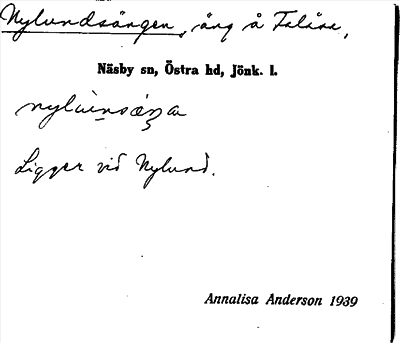 Nylundsängen, äng å Falåsa,
Näsby sn, Östra hd, Jönk. l.
Ligger vid Nylund.
Annalisa Anderson 1939